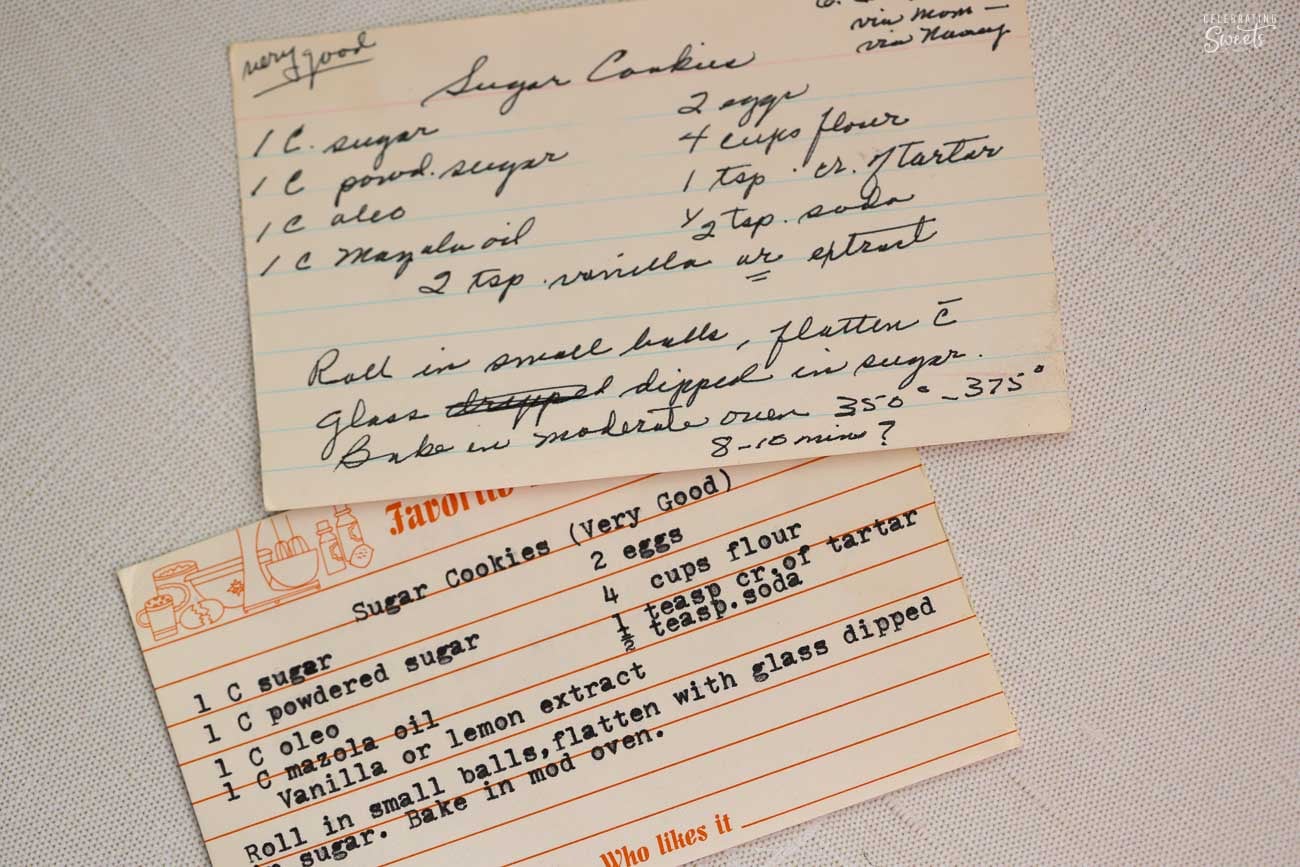 CELEBRATING
Sweets
very good
via Mom —
via Nancy
Sugar Cookies
1 C. sugar
1 C powd. sugar
1 C oleo
1 C Mazola oil
2 eggs
4 cups flour
1 tsp. cr. of tartar
1/2 tsp. soda
2 tsp. vanilla or extract
Roll in small balls, flatten c̄
glass dipped in sugar.
Bake in moderate oven 350° - 375°
8-10 min?
Favorite
Sugar Cookies (Very Good)
1 C sugar
1 C powdered sugar
1 C oleo
1 C mazola oil
2 eggs
4 cups flour
1 teasp cr.of tartar
½ teasp.soda
Vanilla or lemon extract
Roll in small balls,flatten with glass dipped
sugar. Bake in mod oven.
Who likes it